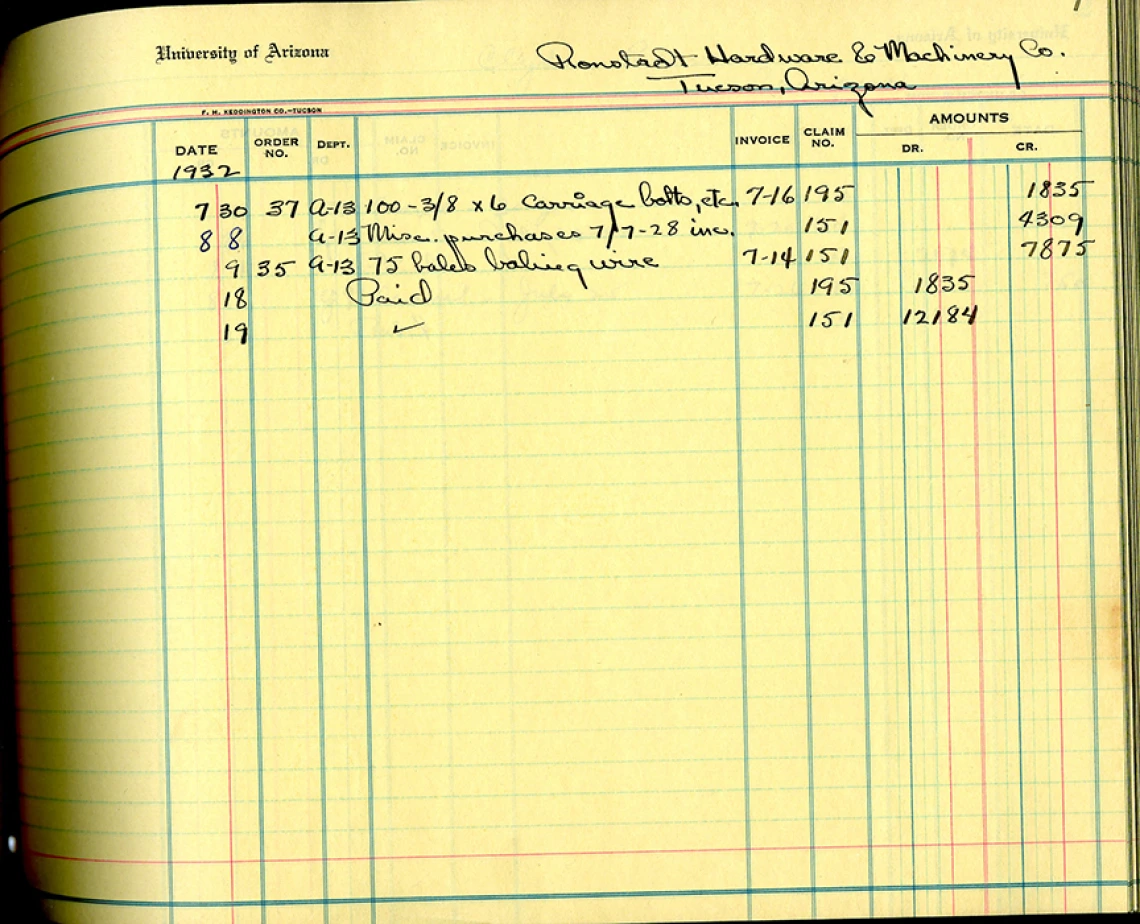 University of Arizona
Ronstadt Hardware & Machinery Co.
Tucson, Arizona
F. M. KEDDINGTON CO.—TUCSON
DATE ORDER NO. DEPT. INVOICE CLAIM NO. AMOUNTS DR. CR.
1932
7 30 37 A-13 100 - 3/8 x 6 Carriage bolts, etc. 7-16 195 1835
8 8 A-13 Misc. purchases 7/7-28 inc. 151 4309
9 35 A-13 75 bales baling wire 7-14 151 7875
18 Paid 195 1835
19 ✓ 151 12184